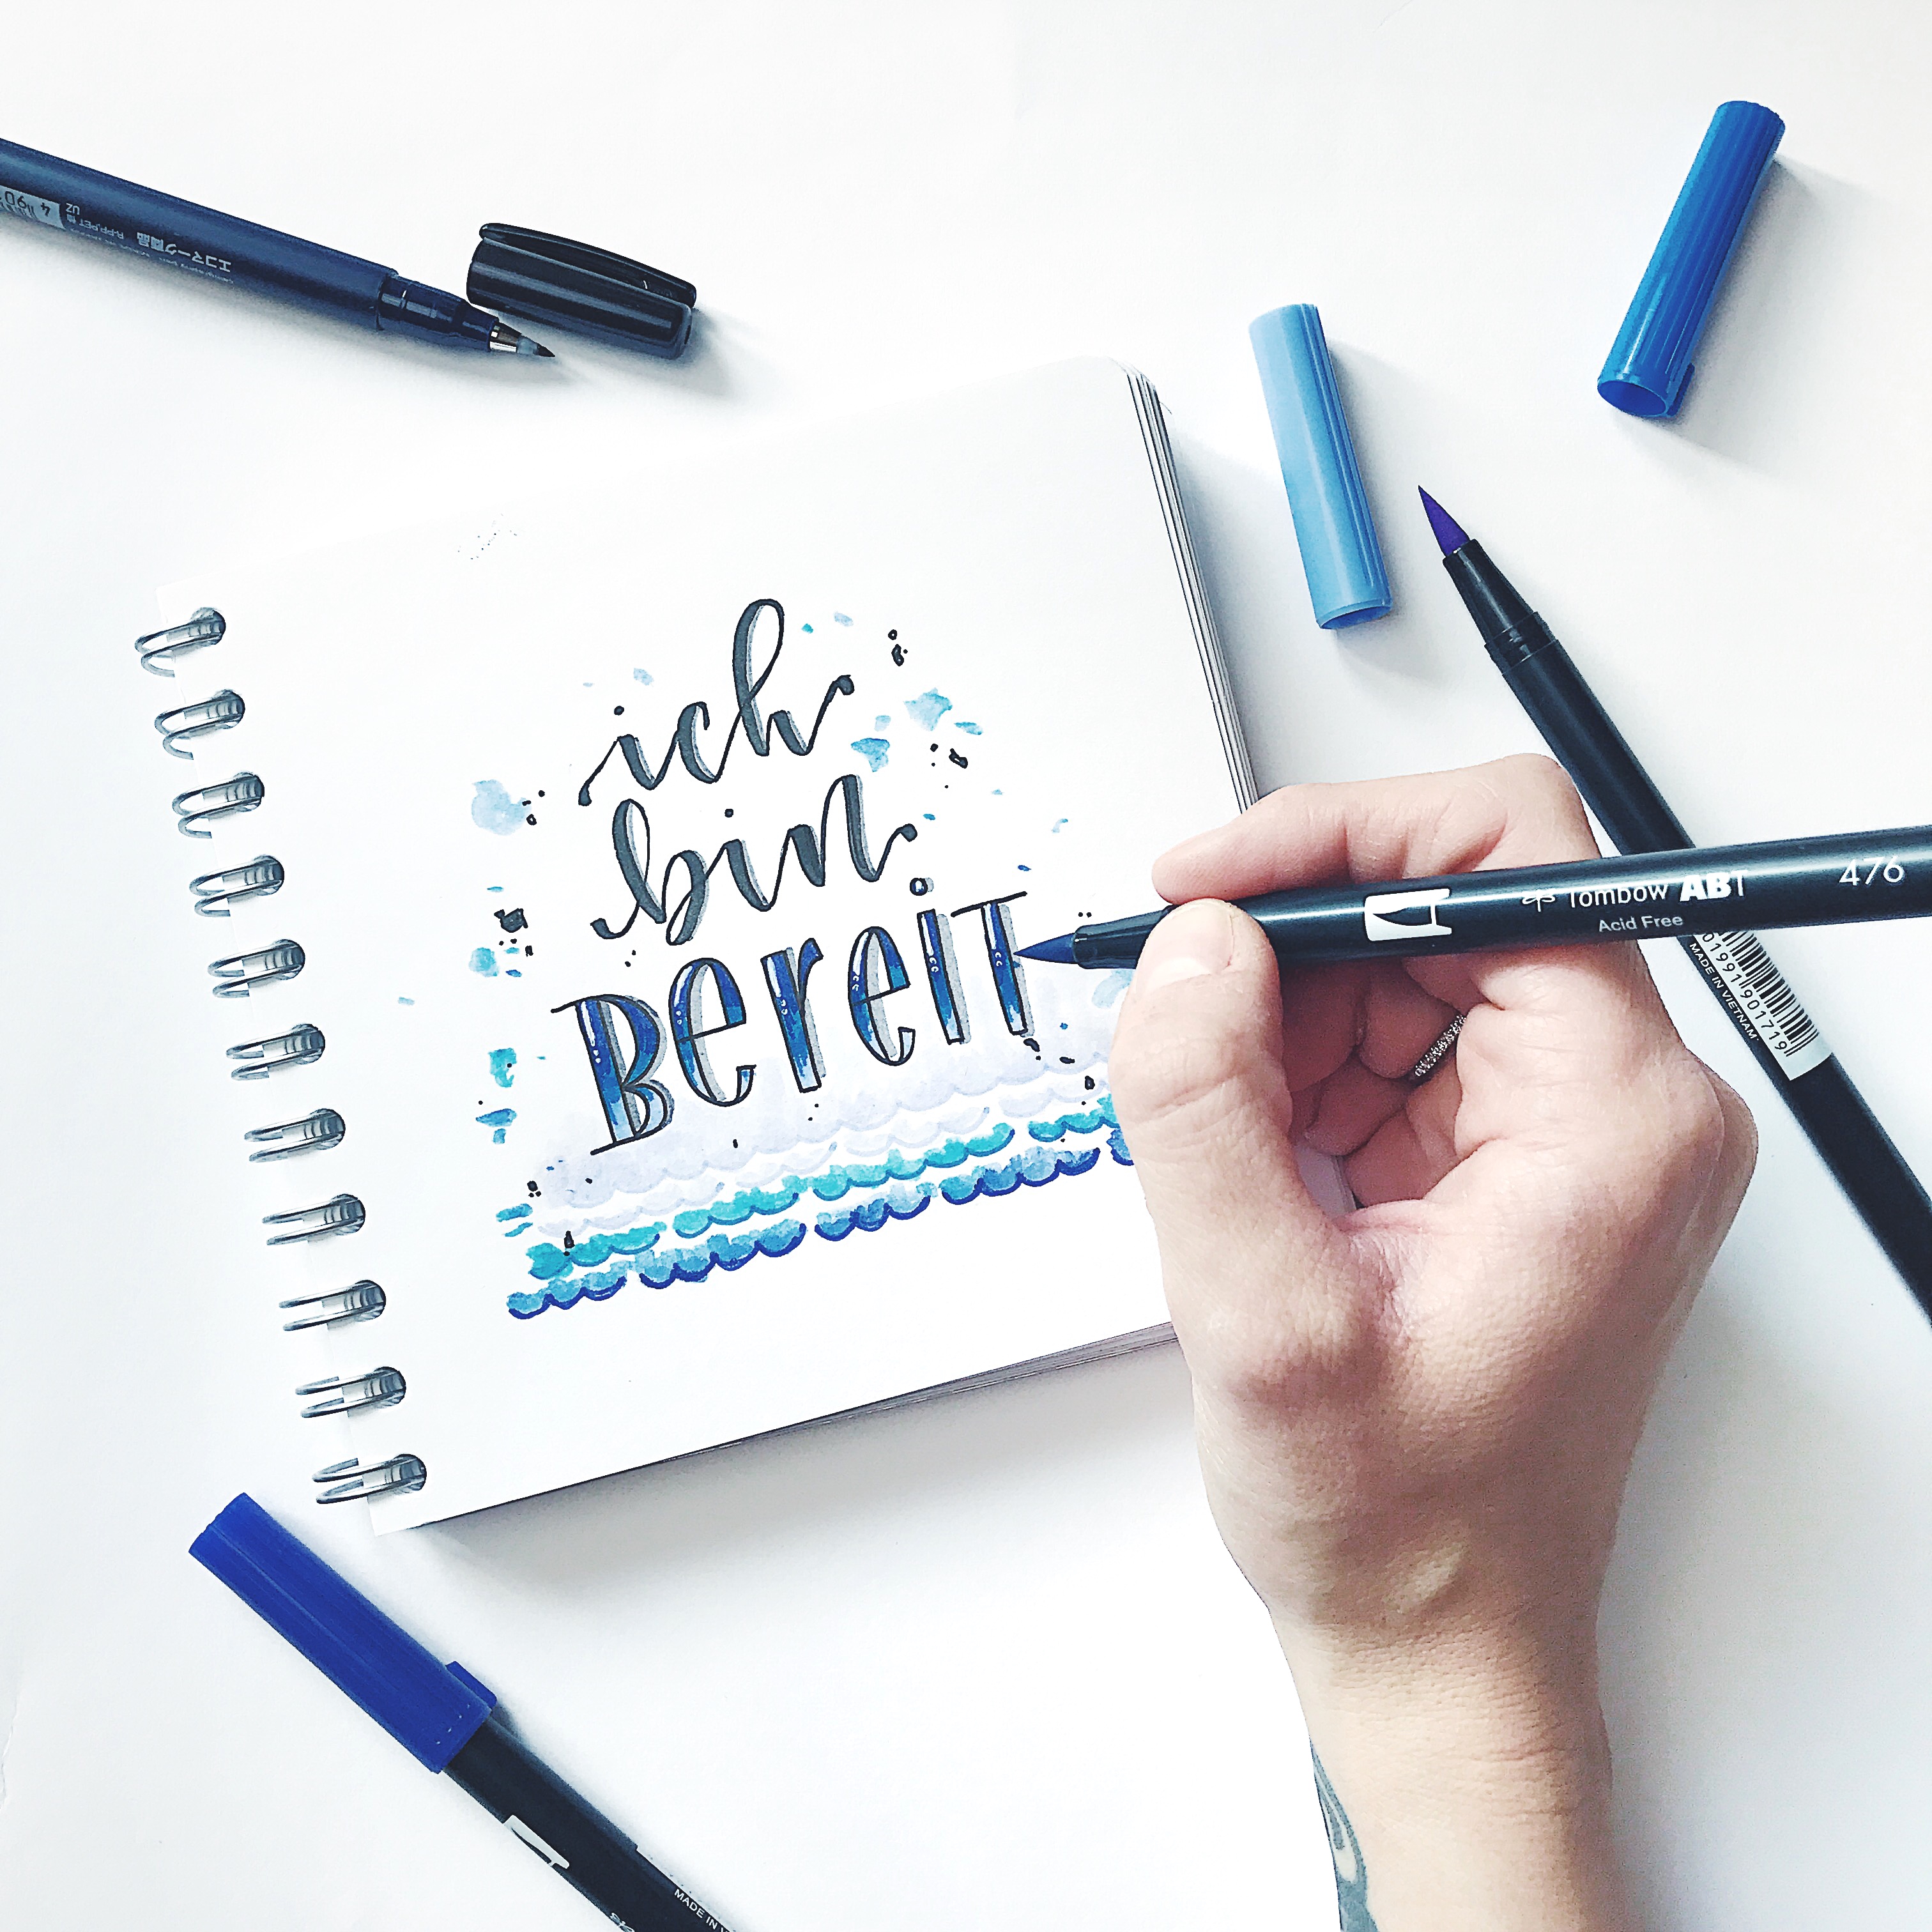 ich
bin
BereiT
Tombow ABT
476
Acid Free
MADE IN VIETNAM
エコマーク商品
MADE IN